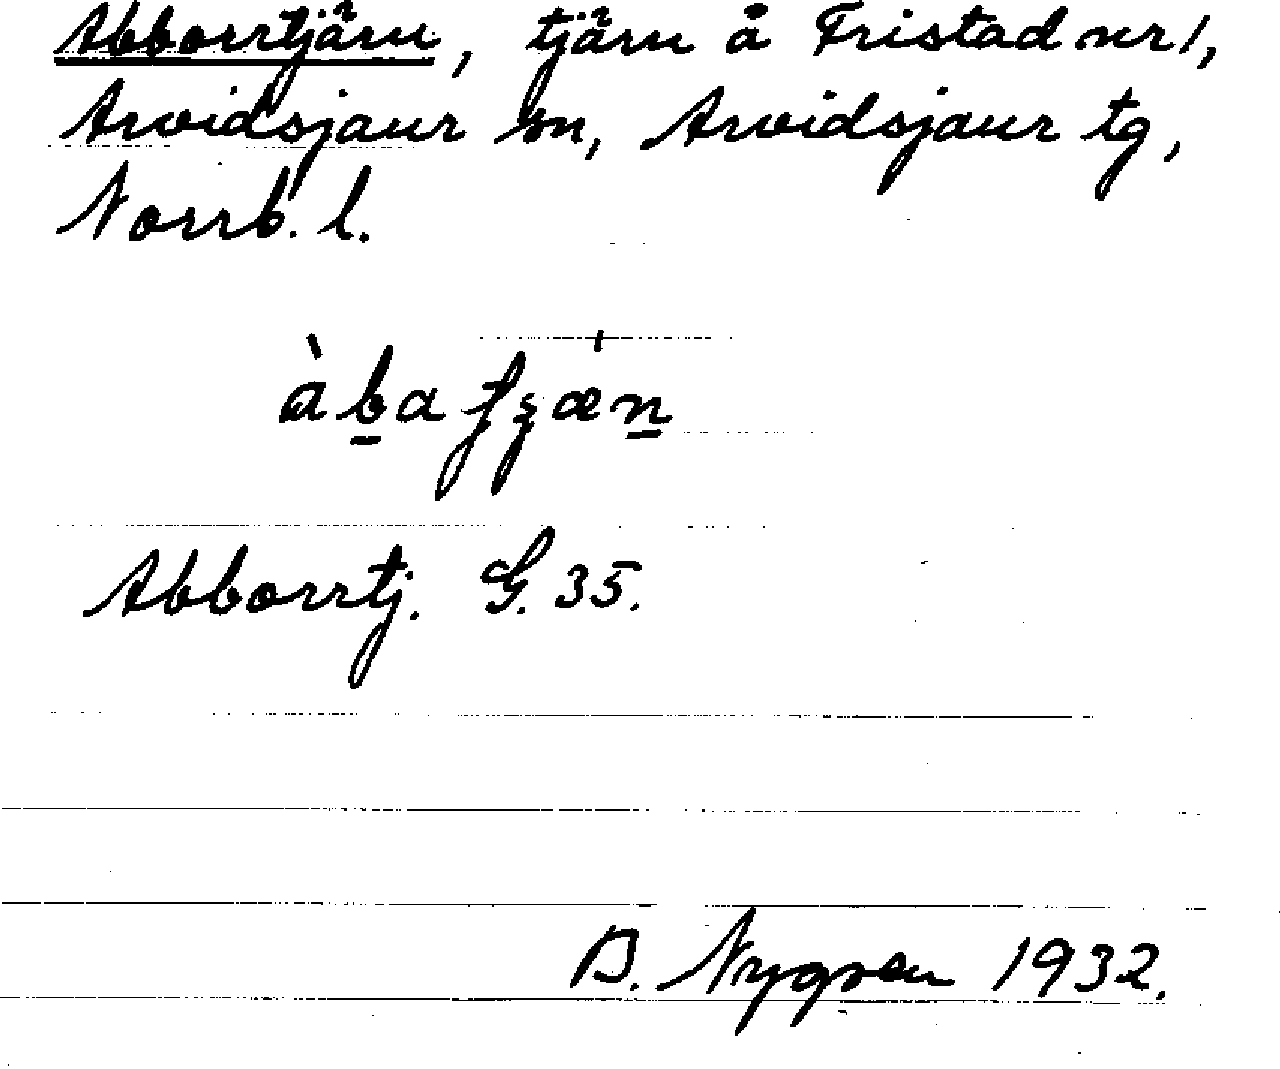 Abborrtjärn, tjärn å Fristad nr 1,
Arvidsjaur sn, Arvidsjaur tg,
Norrb. l.
Abborrtj. G. 35.
B. Nygren 1932.